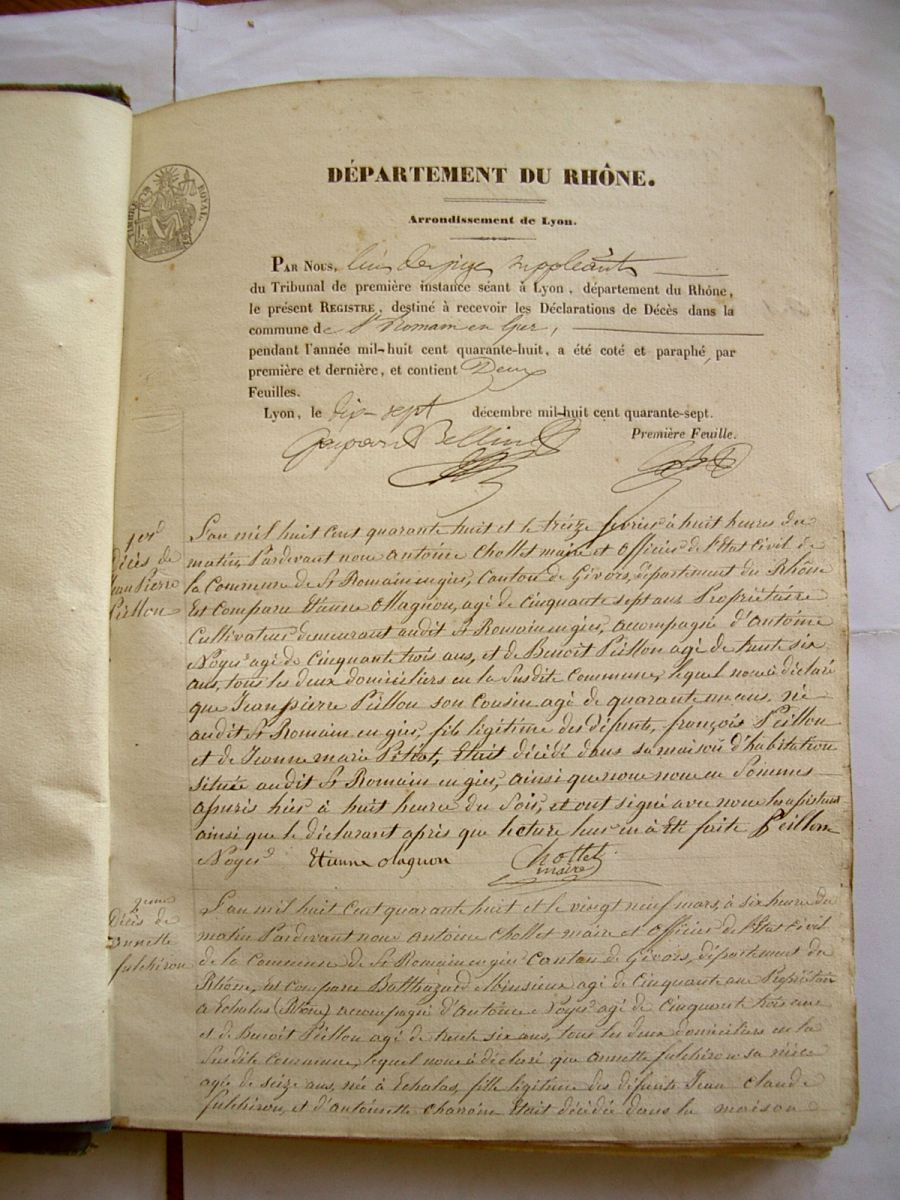 TIMBRE ROYAL
DÉPARTEMENT DU RHÔNE.
Arrondissement de Lyon.
PAR NOUS, l'un des juges suppléants
du Tribunal de première instance séant à Lyon, département du Rhône,
le présent REGISTRE, destiné à recevoir les Déclarations de Décès dans la
commune de St Romain en Gier,
pendant l'année mil-huit cent quarante-huit, a été coté et paraphé, par
première et dernière, et contient Deux
Feuilles.
Lyon, le dix-sept décembre mil-huit cent quarante-sept.
Première Feuille.
1er
Décès de
Jean Pierre
Peillon
L'an mil huit cent quarante huit et le treize février à huit heures du
matin, Pardevant nous Antoine Chollet maire et officier de l'Etat Civil de
la Commune de St Romain en gier, Canton de Givors, département du Rhône
Est comparu Etienne Magnon, agé de cinquante sept ans Propriétaire
Cultivateur demeurant audit St Romain en gier, acompagné d'Antoine
Noyer agé de cinquante trois ans, et de Benoit Peillon agé de trente six
ans, tous les deux domiciliers en la Susdite Commune, lequel nous à déclaré
que Jean pierre Peillon son cousin agé de quarante un ans, né
audit St Romain en gier, fils légitime des défunts, françois Peillon
et de Jeanne marie Pitiot, Etait décédé dans sa maison d'habitation
située audit St Romain en gier, ainsi que nous nous en Sommes
apuris hier à huit heures du Soir, et ont signé avec nous les assistans
ainsi que le déclarant après que lecture leur en à Eté faite Peillon
Noyer Etienne Magnon Chollet
maire
2eme
Décès de
Annette
fulchiron
L'an mil huit cent quarante huit et le vingt neuf mars, à six heures du
matin Pardevant nous Antoine Chollet maire et Officier de l'Etat Civil
de la Commune de St Romain en gier Canton de Givors, département du
Rhône, Est comparu Balthazard agé de cinquante ans Propriétaire
a Echalas (Rhône) acompagné d'Antoine Noyer agé de cinquante trois ans
et de Benoit Peillon agé de trente six ans, tous les deux domiciliers en la
Susdite Commune, lequel nous à déclaré que annette fulchiron sa nièce
agée de seize ans, née à Echalas, fille légitime des défunts Jean Claude
fulchiron, et d'Antoinette Etait décédée dans la maison